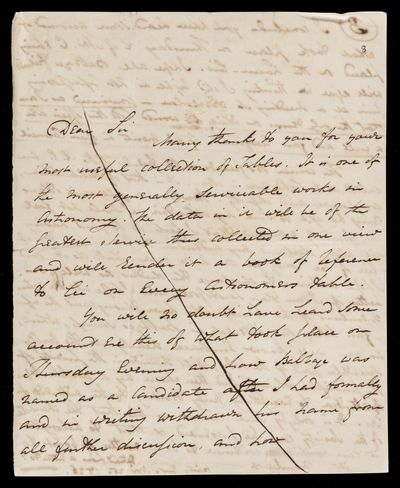 8
Dear Sir
Many thanks to you for your
most useful collection of Tables. It is one of
the most generally serviceable works in
Astronomy. The data in it will be of the
greatest service thus collected in one view
and will render it a book of reference
to lie on every astronomers table.
You will no doubt have heard some
account ere this of what took place on
Thursday Evening and how Babbage was
named as a Candidate after I had formally
and in writing withdrawn his name from
all further discussion, and how